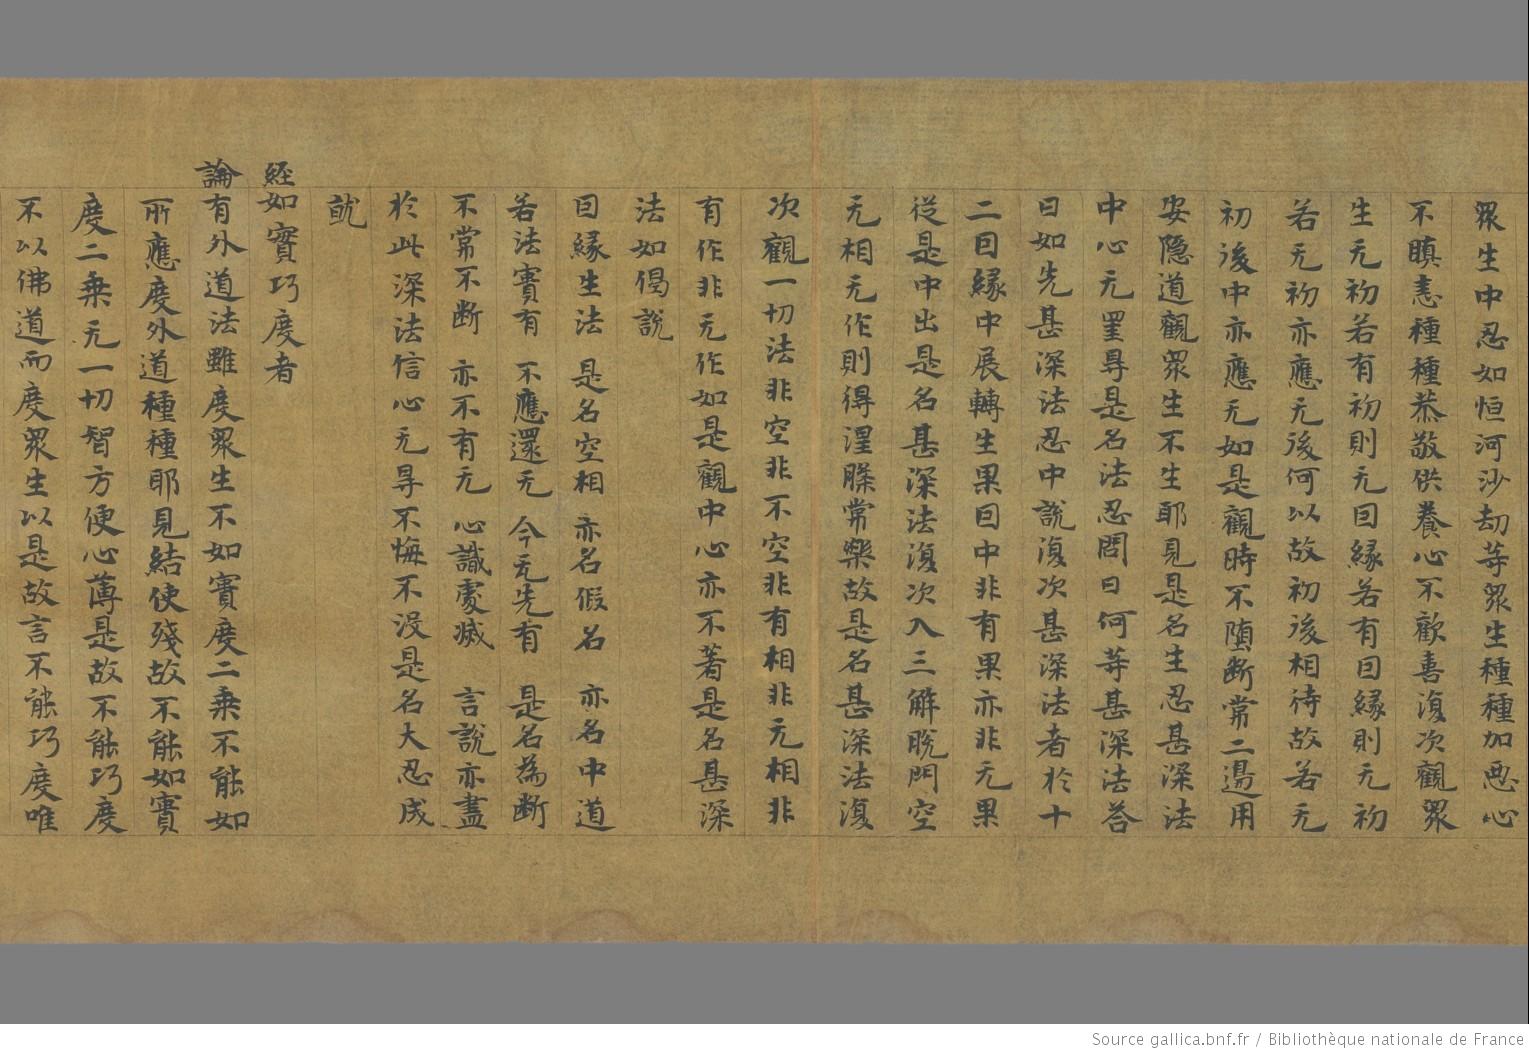 眾生中忍如恒河沙劫等眾生種種加惡心
不瞋恚種種恭敬供養心不歡喜復次觀眾
生无初若有初則无因緣若有因緣則无初
若无初亦應无後何以故初後相待故若无
初後中亦應无如是觀時不墮斷常二邊用
安隱道觀眾生不生耶見是名生忍甚深法
中心无罣㝵是名法忍問曰何等甚深法荅
曰如先甚深法忍中說復次甚深法者於十
二因緣中展轉生果因中非有果亦非无果
從是中出是名甚深法復次入三解脫門空
无相无作則得涅槃常樂故是名甚深法復
次觀一切法非空非不空非有相非无相非
有作非无作如是觀中心亦不著是名甚深
法如偈說
因緣生法 是名空相 亦名假名 亦名中道
若法實有 不應還无 今无先有 是名為斷
不常不斷 亦不有无 心識處滅 言說亦盡
於此深法信心无㝵不悔不沒是名大忍成
就
經如實巧度者
論有外道法雖度眾生不如實度二乘不能如
所應度外道種種耶見結使殘故不能如實
度二乘无一切智方便心薄是故不能巧度
不以佛道而度眾生以是故言不能巧度唯
Source gallica.bnf.fr / Bibliothèque nationale de France